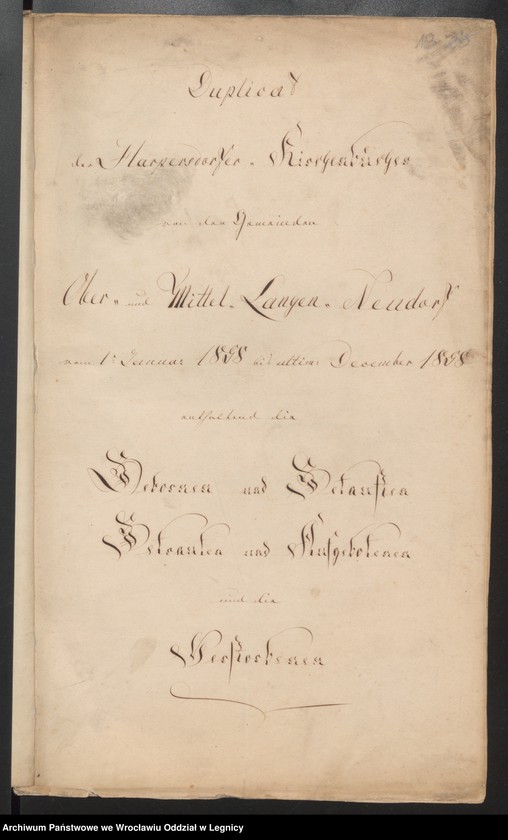 18-26
Duplicat
des Harpersdorfer-Kirchenbuches
von den Gemeinden
Ober- und Mittel-Langen-Neudorf
vom 1t Januar 1858 bis ultimo December 1858
enthaltend die
Gebornen und Getauften
Getrauten und Aufgebotenen
und die
Verstorbenen
Archiwum Państwowe we Wrocławiu Oddział w Legnicy